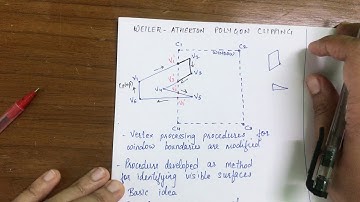 WEILER - ATHERTON POLYGON CLIPPING
C1
C2
WINDOW
V1
V2
V3
V4
V5
V6
(STOP)
C4
C3
- Vertex processing procedures for
window boundaries are modified
- Procedure developed as method
for identifying visible surfaces
Basic idea